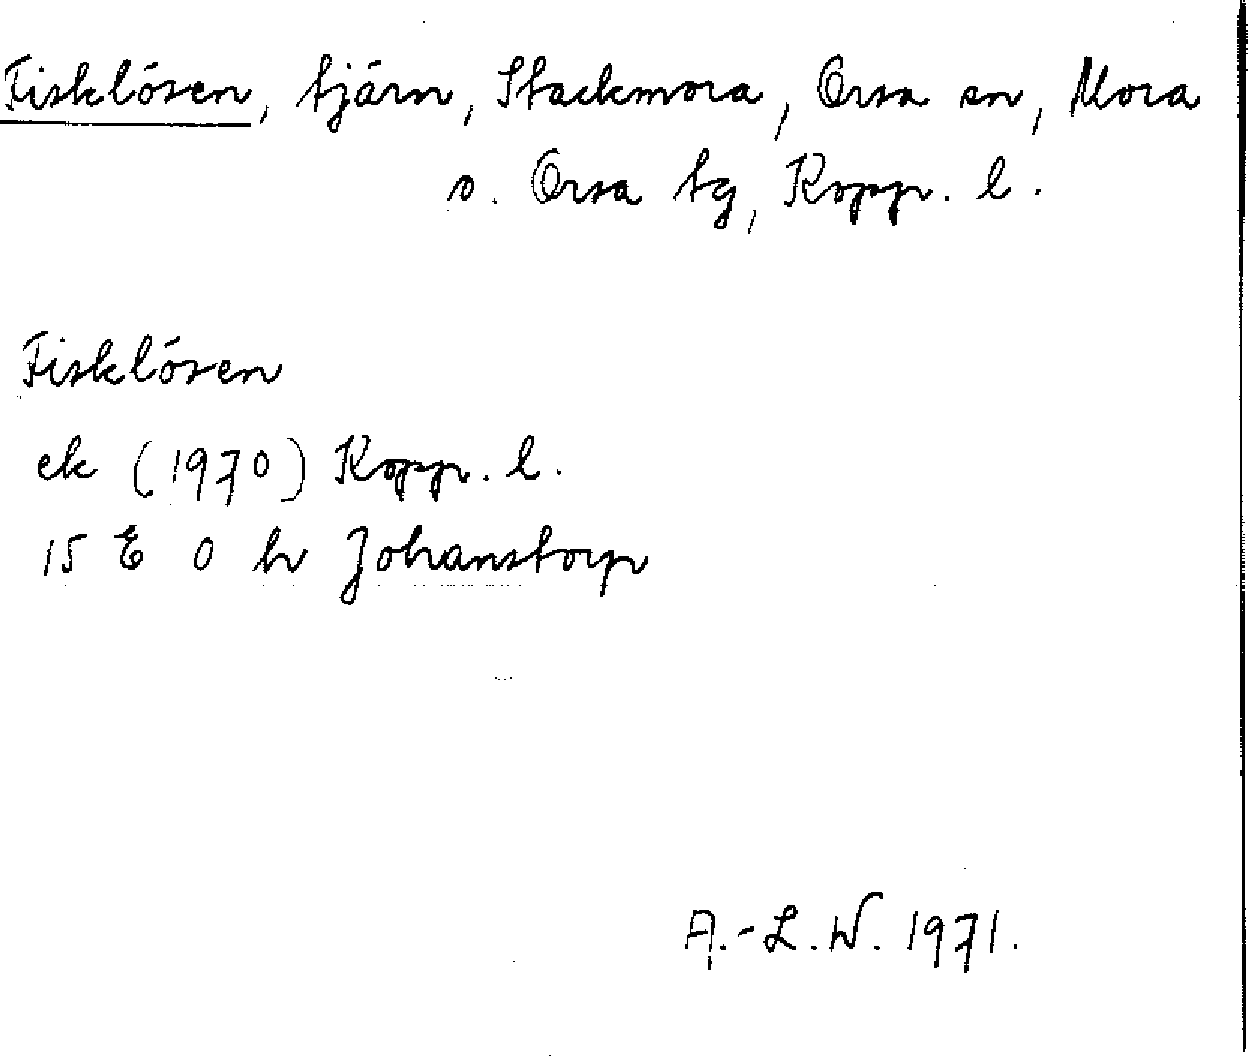 Fisklösen, tjärn, Stackmora, Orsa sn, Mora
o. Orsa tg, Kopp. l.
Fisklösen
ek (1970) Kopp. l.
15 E 0 h Johanstorp
A.-L.W. 1971.